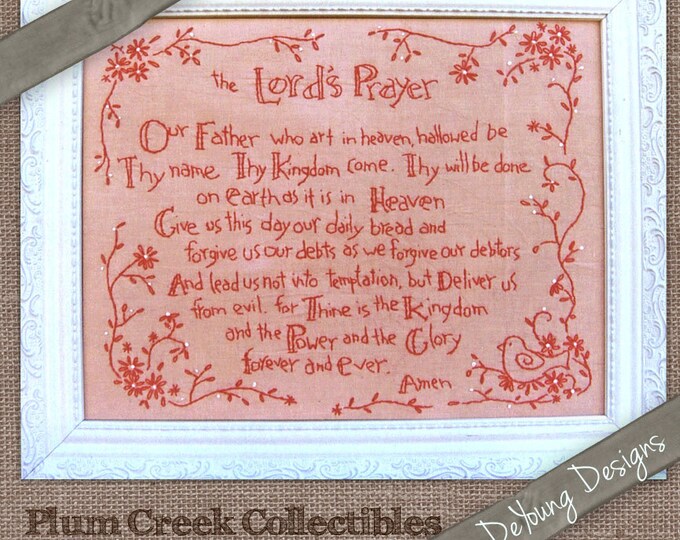 the Lord's Prayer
Our Father who art in heaven, hallowed be
Thy name Thy Kingdom come. Thy will be done
on earth as it is in Heaven
Give us this day our daily bread and
forgive us our debts as we forgive our debtors
And lead us not into temptation, but Deliver us
from evil. for Thine is the Kingdom
and the Power and the Glory
forever and ever.
Amen
Plum Creek Collectibles
DeYoung Designs